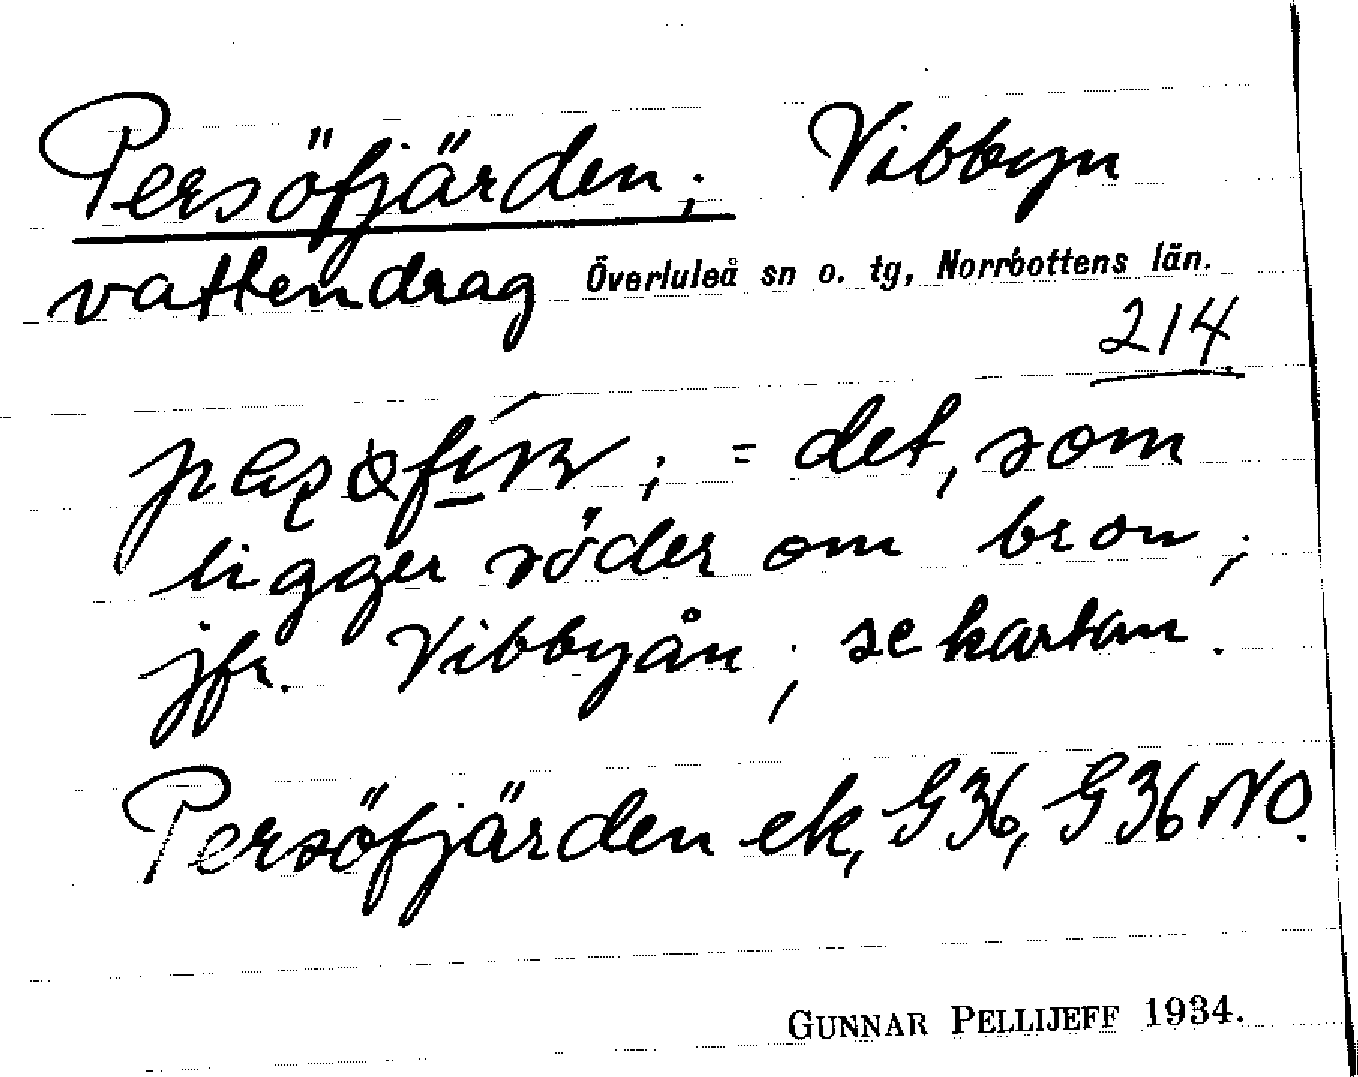 Persöfjärden; Vibbyn
vattendrag Överluleå sn o. tg, Norrbottens län.
214
; = det, som
ligger söder om bron;
jfr. Vibbyån; se kartan.
Persöfjärden ek, G36, G36 NO.
GUNNAR PELLIJEFF 1934.